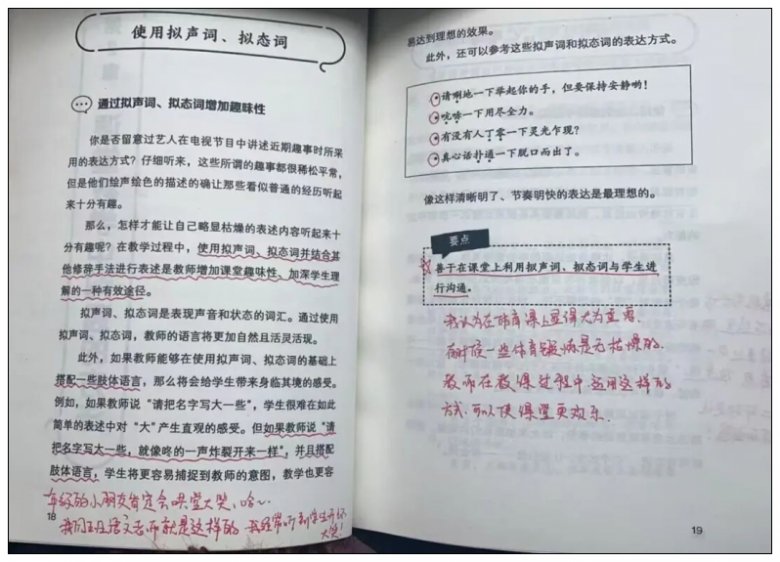 使用拟声词、拟态词
通过拟声词、拟态词增加趣味性
你是否留意过艺人在电视节目中讲述近期趣事时所采
用的表达方式？仔细听来，这些所谓的趣事都很稀松平常，
但是他们绘声绘色的描述的确让那些看似普通的经历听起
来十分有趣。
那么，怎样才能让自己略显枯燥的表述内容听起来十
分有趣呢？在教学过程中，使用拟声词、拟态词并结合其
他修辞手法进行表述是教师增加课堂趣味性、加深学生理
解的一种有效途径。
拟声词、拟态词是表现声音和状态的词汇。通过使用
拟声词、拟态词，教师的语言将更加自然且活灵活现。
此外，如果教师能够在使用拟声词、拟态词的基础上
搭配一些肢体语言，那么将会给学生带来身临其境的感受。
例如，如果教师说“请把名字写大一些”，学生很难在如此
简单的表述中对“大”产生直观的感受。但如果教师说“请
把名字写大一些，就像咚的一声炸裂开来一样”，并且搭配
肢体语言，学生将更容易捕捉到教师的意图，教学也更容
年级的小朋友肯定会哄堂大笑，哈～
我们班语文老师就是这样的 我经常听到学生开怀
大笑！
18
易达到理想的效果。
此外，还可以参考这些拟声词和拟态词的表达方式。
请唰地一下举起你的手，但要保持安静哟！
吭哧一下用尽全力。
有没有人丁零一下灵光乍现？
真心话扑通一下脱口而出了。
像这样清晰明了、节奏明快的表达是最理想的。
要点
善于在课堂上利用拟声词、拟态词与学生进
行沟通。
我认为在体育课上显得尤为重要.
有时候一些体育 是无枯燥的.
教师在教课过程中 运用这样的
方式.可以使课堂更欢乐.
19